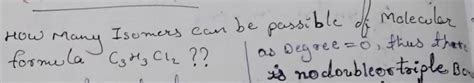 How Many Isomers can be passible of Molecular
formula C₃H₃Cl₂ ??
as Degree = 0, thus there
is no double or triple Bo